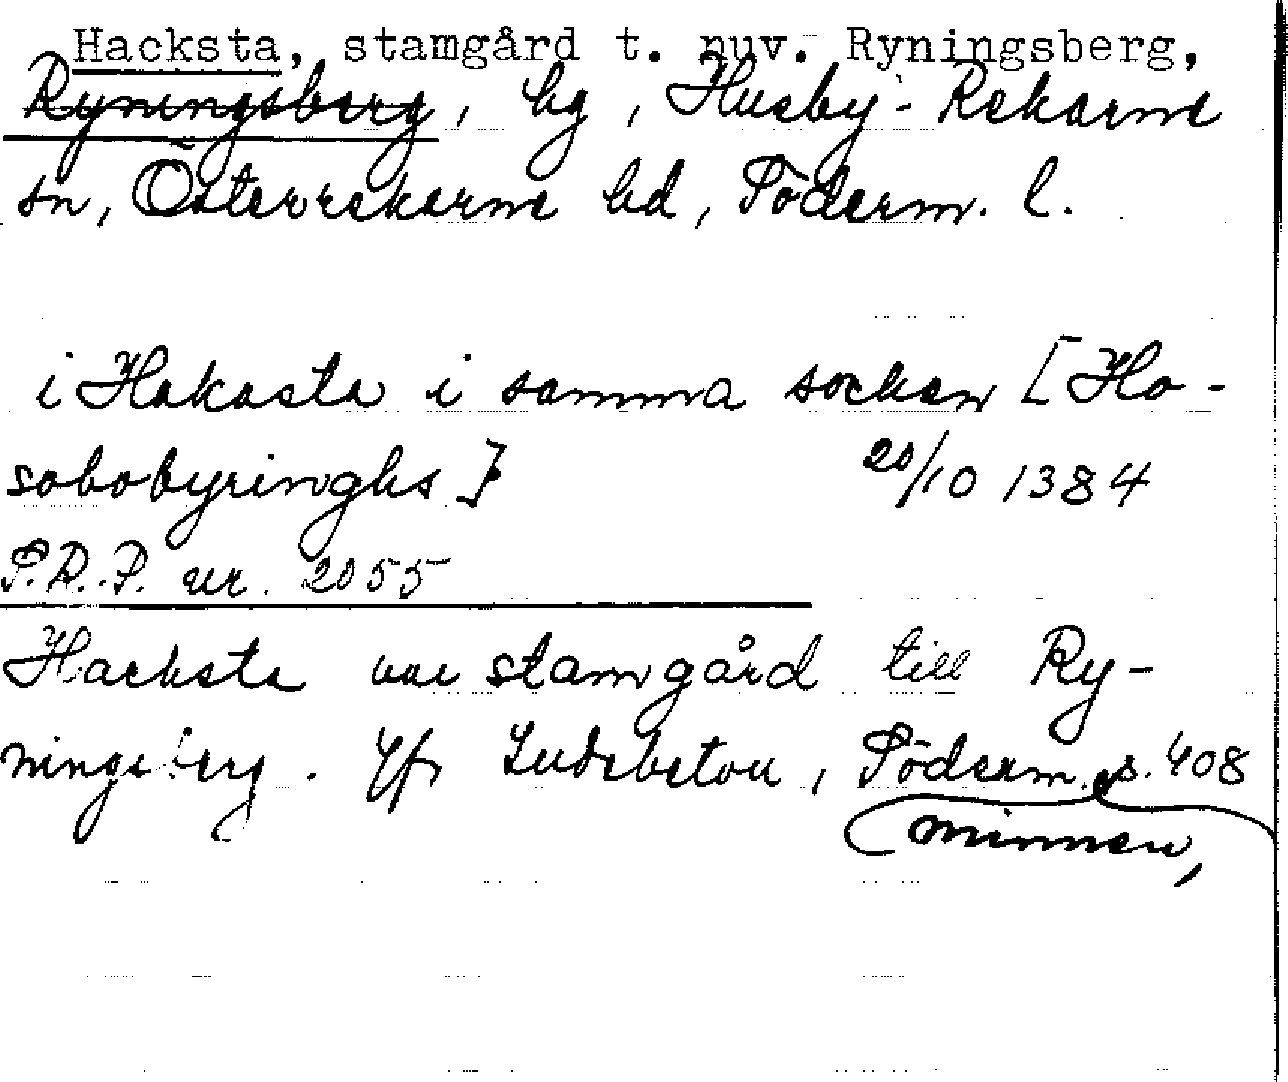 Hacksta, stamgård t. nuv. Ryningsberg,
Ryningsberg, hg, Husby-Rekarne
sn, Österrekarne hd, Söderm. l.
i Hakasta i samma socken [Ho-
sobobyringhs] 20/10 1384
S.R.P. nr. 2055
Hacksta var stamgård till Ry-
ningsberg. Jfr Ludsbetou, Söderm. s. 408
minnen,